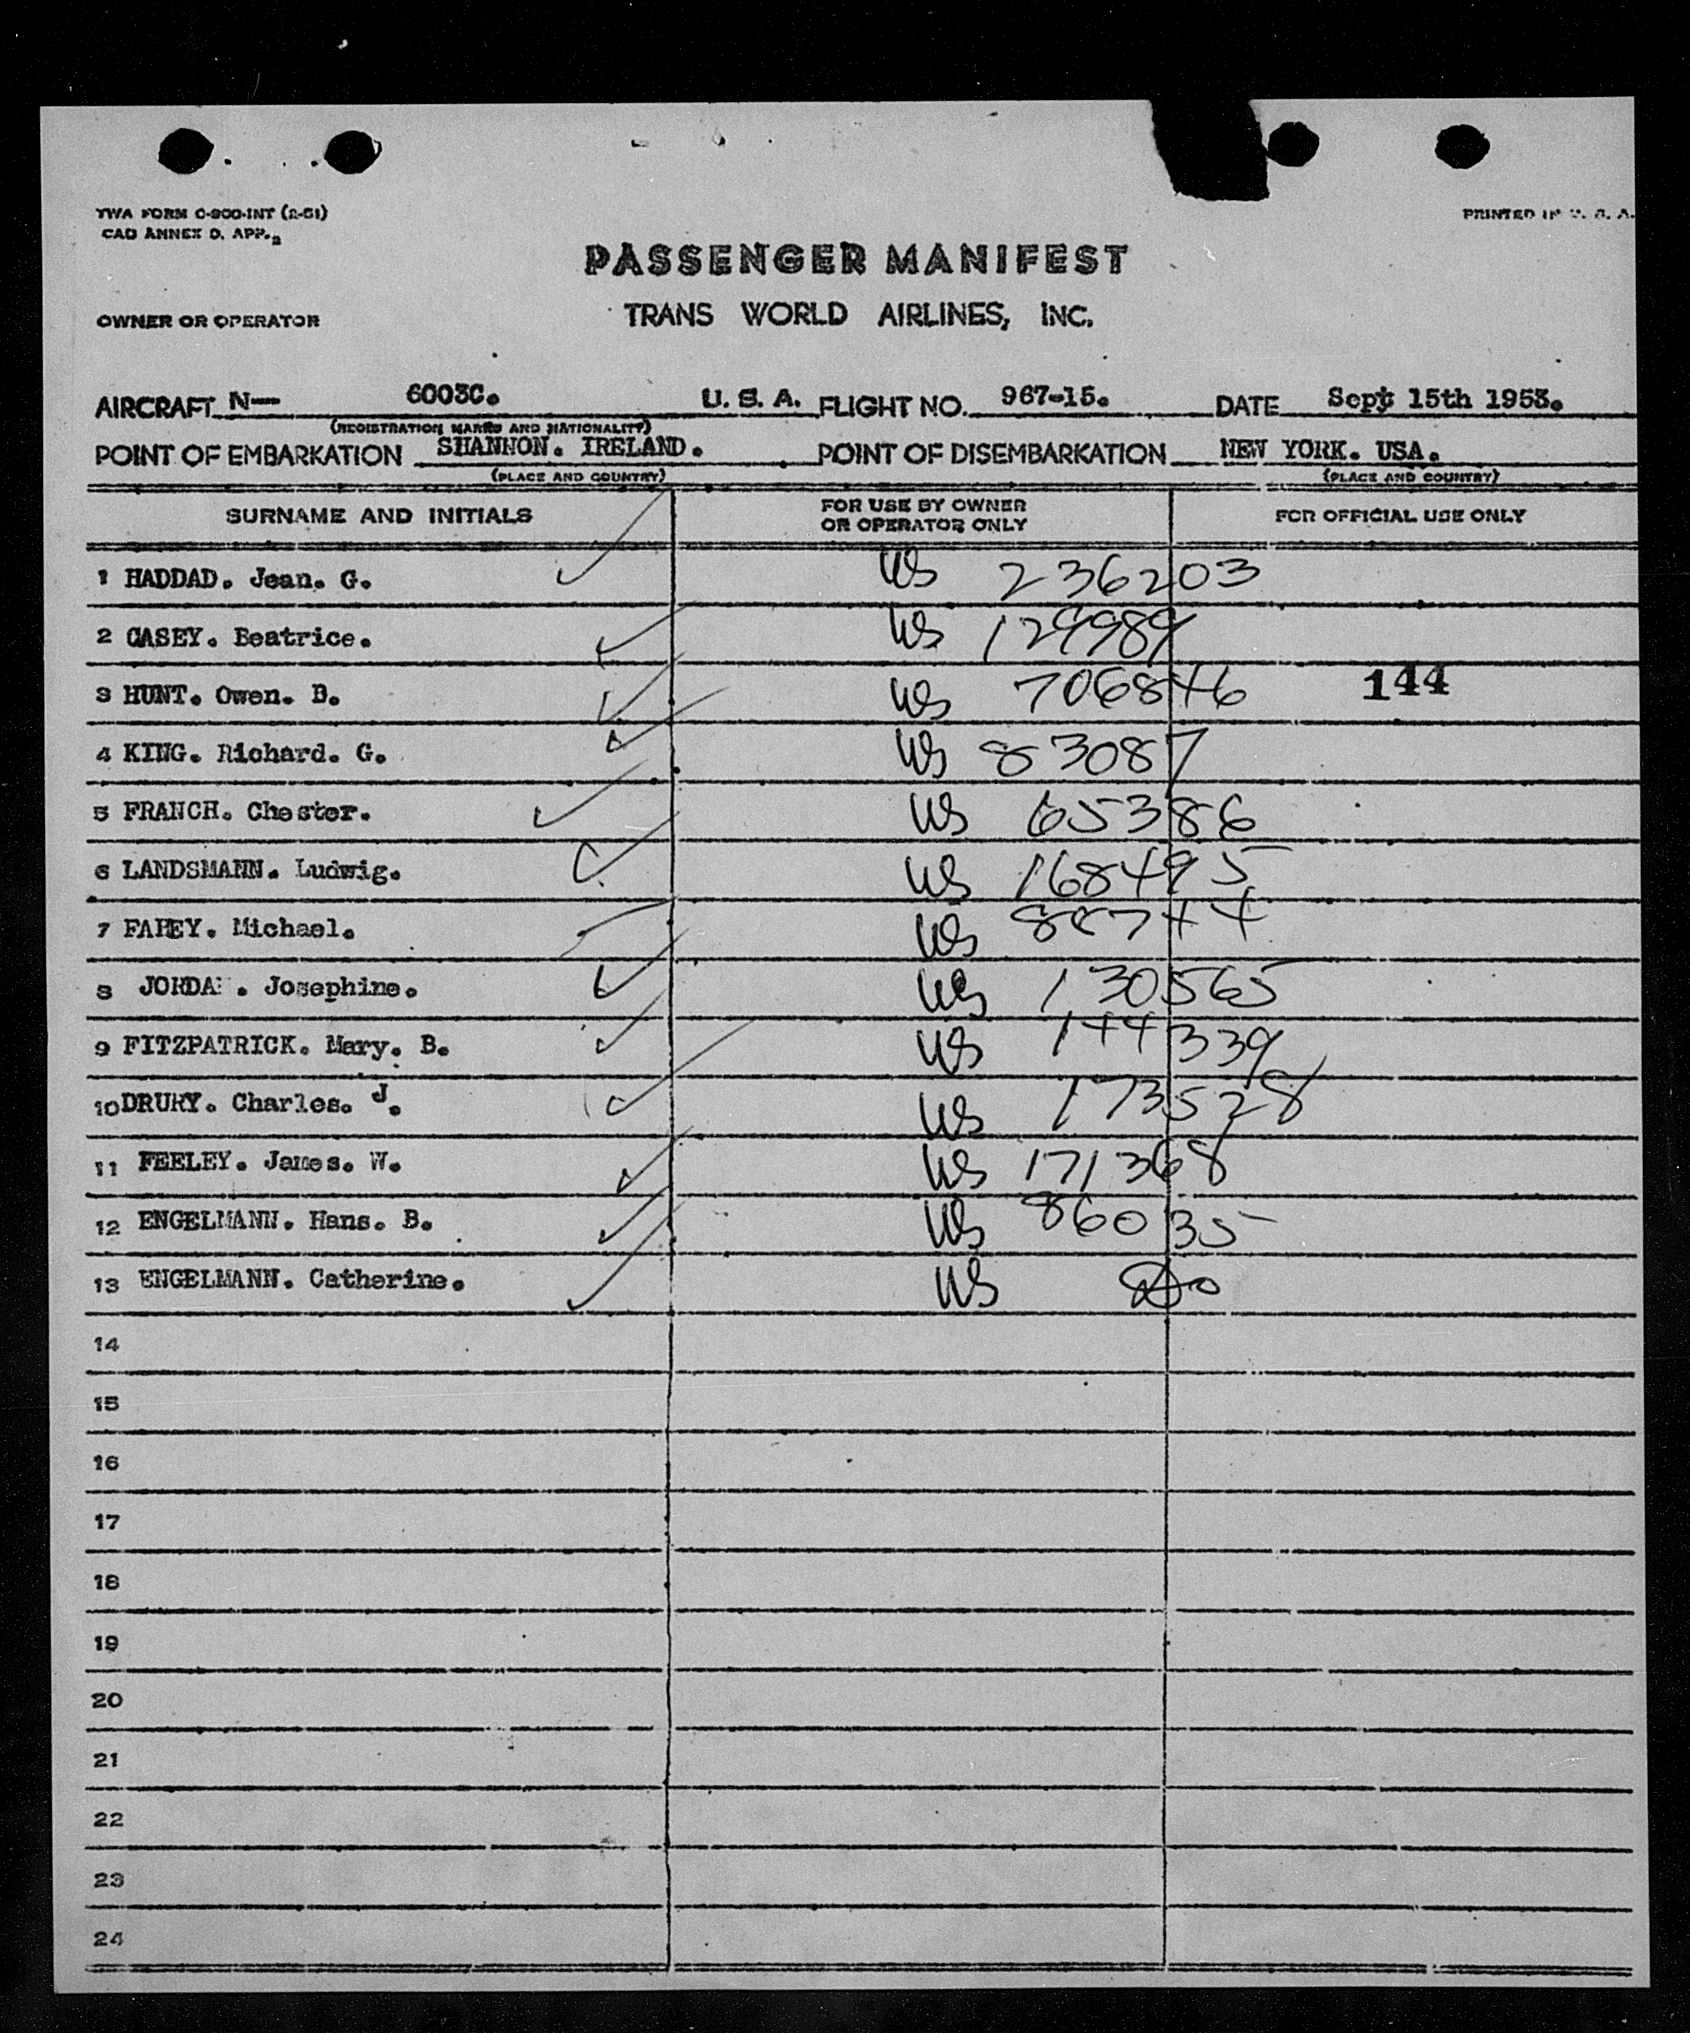 TWA FORM O-900-INT (2-51)
PRINTED IN U. S. A.
CAO ANNEX D. APP. 2
PASSENGER MANIFEST
OWNER OR OPERATOR TRANS WORLD AIRLINES, INC.
AIRCRAFT N— 6003C. U. S. A. FLIGHT NO. 967-15. DATE Sept 15th 1953.
(REGISTRATION MARKS AND NATIONALITY)
POINT OF EMBARKATION SHANNON. IRELAND. POINT OF DISEMBARKATION NEW YORK. USA.
(PLACE AND COUNTRY) (PLACE AND COUNTRY)
SURNAME AND INITIALS FOR USE BY OWNER OR OPERATOR ONLY FOR OFFICIAL USE ONLY
1 HADDAD. Jean. G. US 236203
2 CASEY. Beatrice. US 129989
3 HUNT. Owen. B. US 706846 144
4 KING. Richard. G. US 83087
5 FRANCH. Chester. US 65386
6 LANDSMANN. Ludwig. US 168495
7 FAHEY. Michael. US
8 JORDA . Josephine. US 130565
9 FITZPATRICK. Mary. B. US 144339
10 DRURY. Charles. J. US 173528
11 FEELEY. James. W. US 171368
12 ENGELMANN. Hans. B. US 86035
13 ENGELMANN. Catherine. US Do
14
15
16
17
18
19
20
21
22
23
24